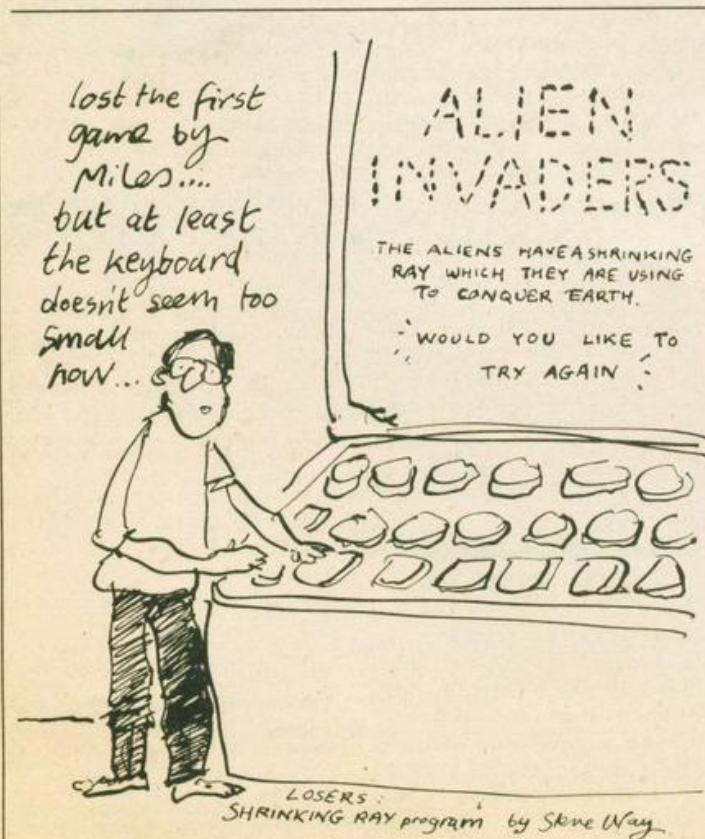 lost the first
game by
Miles....
but at least
the keyboard
doesn't seem too
small
now...
ALIEN
INVADERS
THE ALIENS HAVE A SHRINKING
RAY WHICH THEY ARE USING
TO CONQUER EARTH.
WOULD YOU LIKE TO
TRY AGAIN
LOSERS:
SHRINKING RAY program by Steve Way